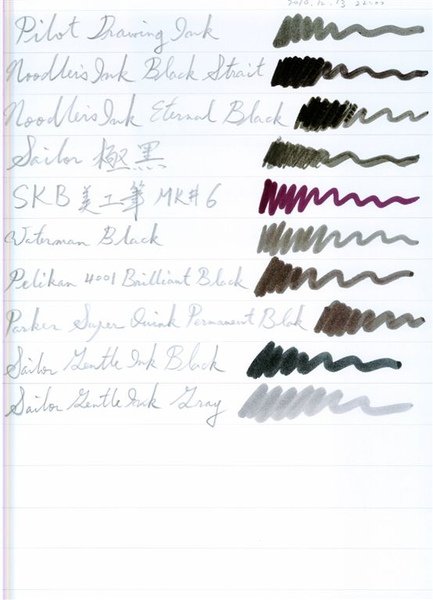 2010.12.13 22:00
Pilot Drawing Ink
Noodler's Ink Black Strait
Noodler's Ink Eternal Black
Sailor 極黒
SKB 美工筆 MK#6
Waterman Black
Pelikan 4001 Brilliant Black
Parker Super Quink Permanent Blak
Sailor Gentle Ink Black
Sailor Gentle Ink Gray